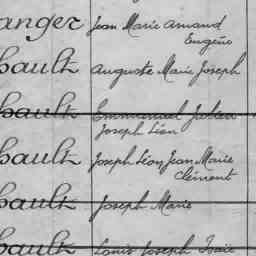 anger Jean Marie Armand
Eugène
bault Auguste Marie Joseph
bault Emmanuel Julien
Joseph Léon
bault Joseph Léon Jean Marie
Clément
bault Joseph Marie
bault Louis Joseph